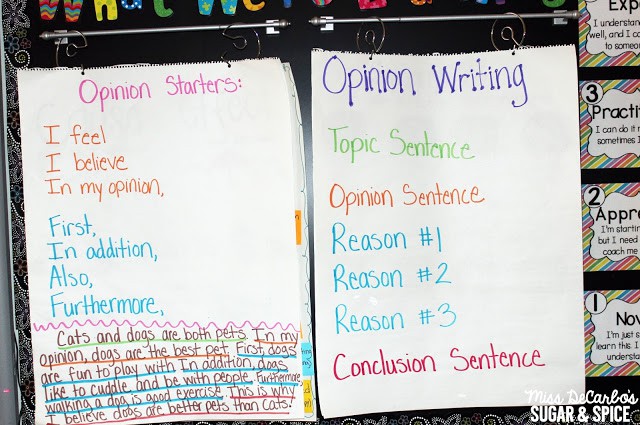 What We're Learning
Opinion Starters:
I feel
I believe
In my opinion,
First,
In addition,
Also,
Furthermore,
Cats and dogs are both pets. In my
opinion, dogs are the best pet. First, dogs
are fun to play with. In addition, dogs
like to cuddle and be with people. Furthermore,
walking a dog is good exercise. This is why
I believe dogs are better pets than cats!
Opinion Writing
Topic Sentence
Opinion Sentence
Reason #1
Reason #2
Reason #3
Conclusion Sentence
Exp
I understand
well, and I co
to someo
3
Practit
I can do it
sometimes I
2
Appre
I'm startin
but I need
coach me
1
Nov
I'm just s
learn this. I
understan
Miss DeCarbo's
SUGAR & SPICE